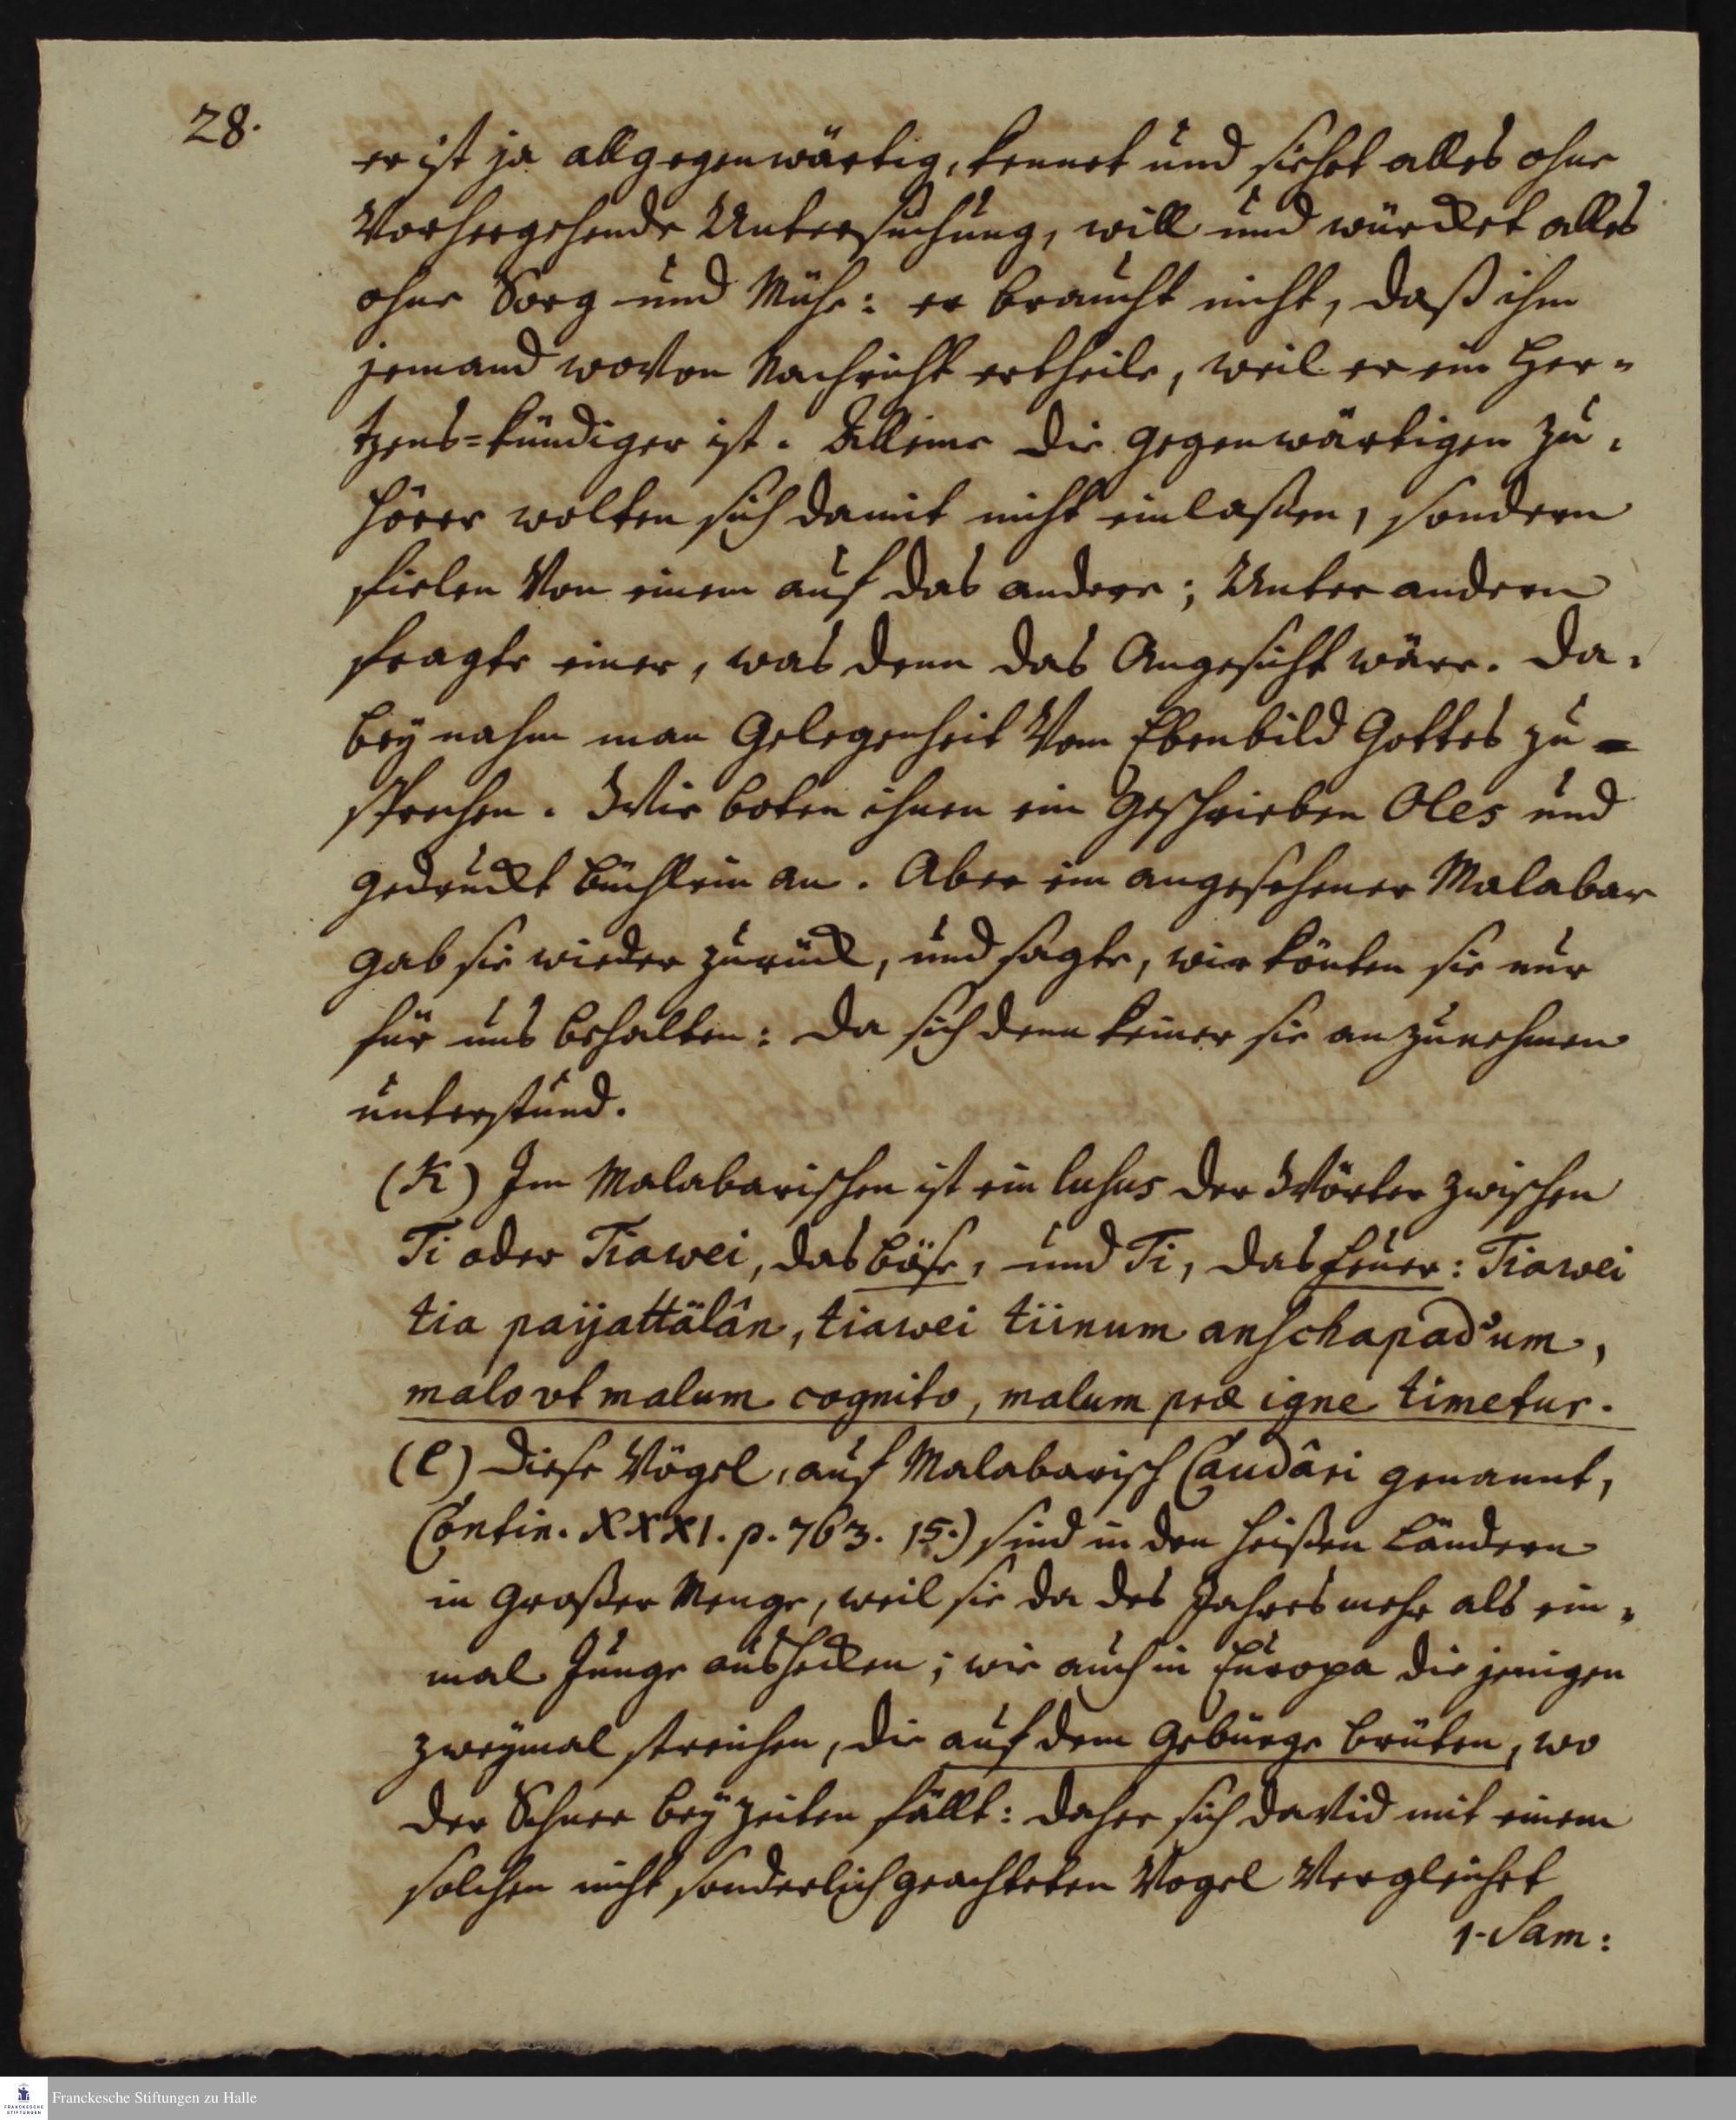 28.
er ist ja allgegenwärtig, kennet und siehet alles ohne
Vorhergehende Untersuchung, will und würcket alles
ohne Sorg und Mühe: er braucht nicht, daß ihm
jemand woVon Nachricht ertheile, weil er ein Her=
tzens=kündiger ist. Alleine die gegenwärtigen Zu=
hörer wolten sich damit nicht einlaßen, sondern
fielen Von einem auf das andere; Unter andern
fragte einer, was denn das Angesicht wäre. Da=
bey nahm man Gelegenheit Vom Ebenbild Gottes zu
sprechen. Wir boten ihnen ein geschrieben Oles und
gedruckt Büchlein an. Aber ein angesehener Malabar
gab sie wieder zurück, und sagte, wir könten sie nur
für uns behalten: da sich denn keiner sie anzunehmen
unterstund.
(K) Im Malabarischen ist ein lusus der Wörter zwischen
Ti oder Tiawei, das Böse, und Ti, das Feuer: Tiawei
tia payjattälân, tiawei tiinum anschapadum,
malo vt malum cognito, malum præ igne timetur.
(l) Diese Vögel, auf Malabarisch Caudâri genannt,
Contin. XXXI. p. 763. 15.) sind in den heißen Ländern
in großer Menge, weil sie da des Jahres mehr als ein=
mal Junge aushecken; wie auch in Europa diejenigen
zweymal streichen, die auf dem Gebürge brüten, wo
der Schnee bey zeiten fällt: daher sich DaVid mit einem
solchen nicht sonderlich geachteten Vogel Vergleichet
1. Sam:
Franckesche Stiftungen zu Halle
FRANCKESCHE
STIFTUNGEN